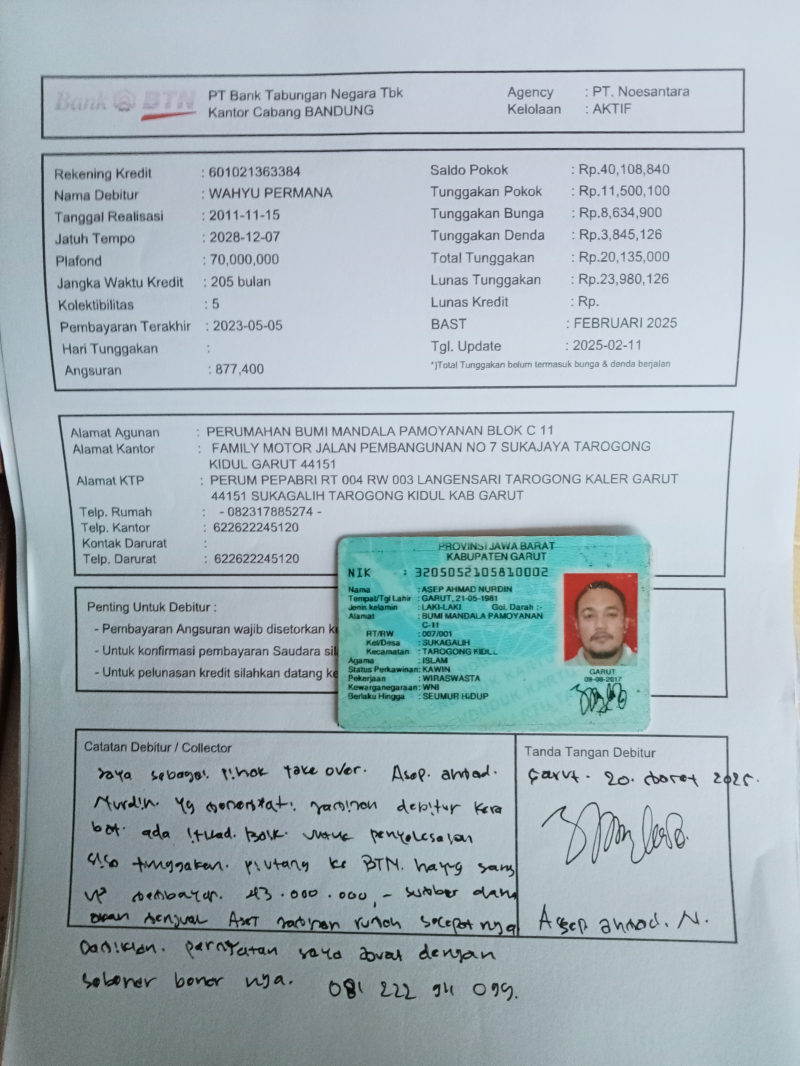 Bank BTN
PT Bank Tabungan Negara Tbk
Kantor Cabang BANDUNG
Agency : PT. Noesantara
Kelolaan : AKTIF
Rekening Kredit : 601021363384
Nama Debitur : WAHYU PERMANA
Tanggal Realisasi : 2011-11-15
Jatuh Tempo : 2028-12-07
Plafond : 70,000,000
Jangka Waktu Kredit : 205 bulan
Kolektibilitas : 5
Pembayaran Terakhir : 2023-05-05
Hari Tunggakan :
Angsuran : 877,400
Saldo Pokok : Rp.40,108,840
Tunggakan Pokok : Rp.11,500,100
Tunggakan Bunga : Rp.8,634,900
Tunggakan Denda : Rp.3,845,126
Total Tunggakan : Rp.20,135,000
Lunas Tunggakan : Rp.23,980,126
Lunas Kredit : Rp.
BAST : FEBRUARI 2025
Tgl. Update : 2025-02-11
*)Total Tunggakan belum termasuk bunga & denda berjalan
Alamat Agunan : PERUMAHAN BUMI MANDALA PAMOYANAN BLOK C 11
Alamat Kantor : FAMILY MOTOR JALAN PEMBANGUNAN NO 7 SUKAJAYA TAROGONG
KIDUL GARUT 44151
Alamat KTP : PERUM PEPABRI RT 004 RW 003 LANGENSARI TAROGONG KALER GARUT
44151 SUKAGALIH TAROGONG KIDUL KAB GARUT
Telp. Rumah : - 082317885274 -
Telp. Kantor : 622622245120
Kontak Darurat :
Telp. Darurat : 622622245120
Penting Untuk Debitur :
- Pembayaran Angsuran wajib disetorkan
- Untuk konfirmasi pembayaran Saudara
- Untuk pelunasan kredit silahkan datang
PROVINSI JAWA BARAT
KABUPATEN GARUT
NIK : 3205052105810002
Nama : ASEP AHMAD NURDIN
Tempat/Tgl Lahir : GARUT, 21-05-1981
Jenis kelamin : LAKI-LAKI Gol. Darah :-
Alamat : BUMI MANDALA PAMOYANAN
C-11
RT/RW : 007/001
Kel/Desa : SUKAGALIH
Kecamatan : TAROGONG KIDUL
Agama : ISLAM
Status Perkawinan: KAWIN
Pekerjaan : WIRASWASTA
Kewarganegaraan: WNI
Berlaku Hingga : SEUMUR HIDUP
GARUT
09-08-2017
Catatan Debitur / Collector
saya sebagai pihak take over. Asep. ahmad.
Nurdin. yg jaminan debitur
ada itikad. Baik. untuk penyelesaian
sisa tunggakan. piutang ke BTN. hanya
membayar. 43.000.000,- sumber dana
akan menjual Aset jaminan rumah secepat nya
Demikian. pernyataan saya buat dengan
sebenar benar nya. 081 222 911 099.
Tanda Tangan Debitur
Garut. 20. Maret 2025.
Asep ahmad. N.